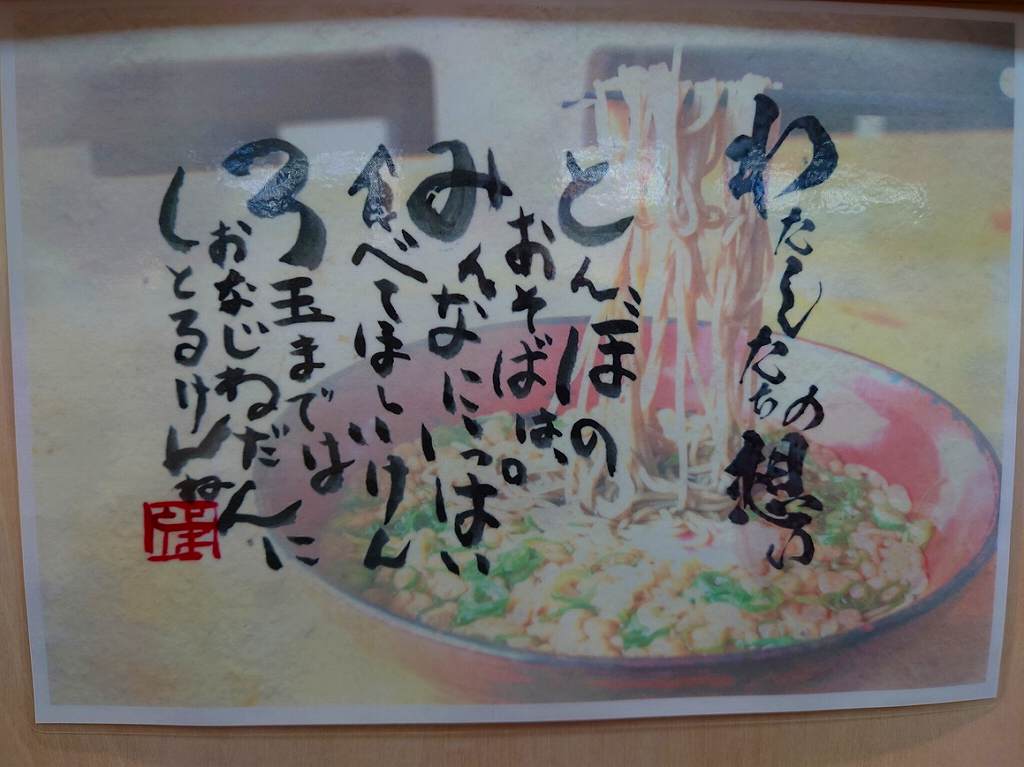 わたしたちの想い
とんぼの
おそばは。
みんなにいっぱい
食べてほしいけん
3玉までは
おなじねだんに
しとるけんね